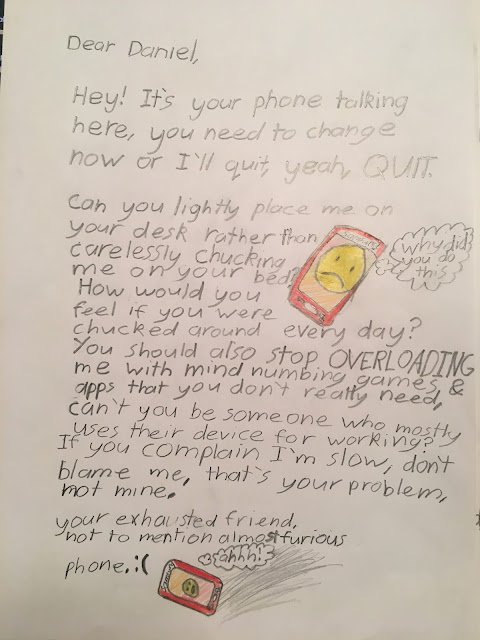 Dear Daniel,
Hey! It's your phone talking
here, you need to change
now or I'll quit, yeah, QUIT.
Can you lightly place me on
your desk rather than
carelessly chucking
me on your bed?
How would you
feel if you were
chucked around every day?
why did
you do
this
You should also stop OVERLOADING
me with mind numbing games &
apps that you don't really need,
can't you be someone who mostly
uses their device for working?
If you complain I'm slow, don't
blame me, that's your problem,
not mine.
your exhausted friend,
not to mention almost furious
phone. :(
ahhh!!